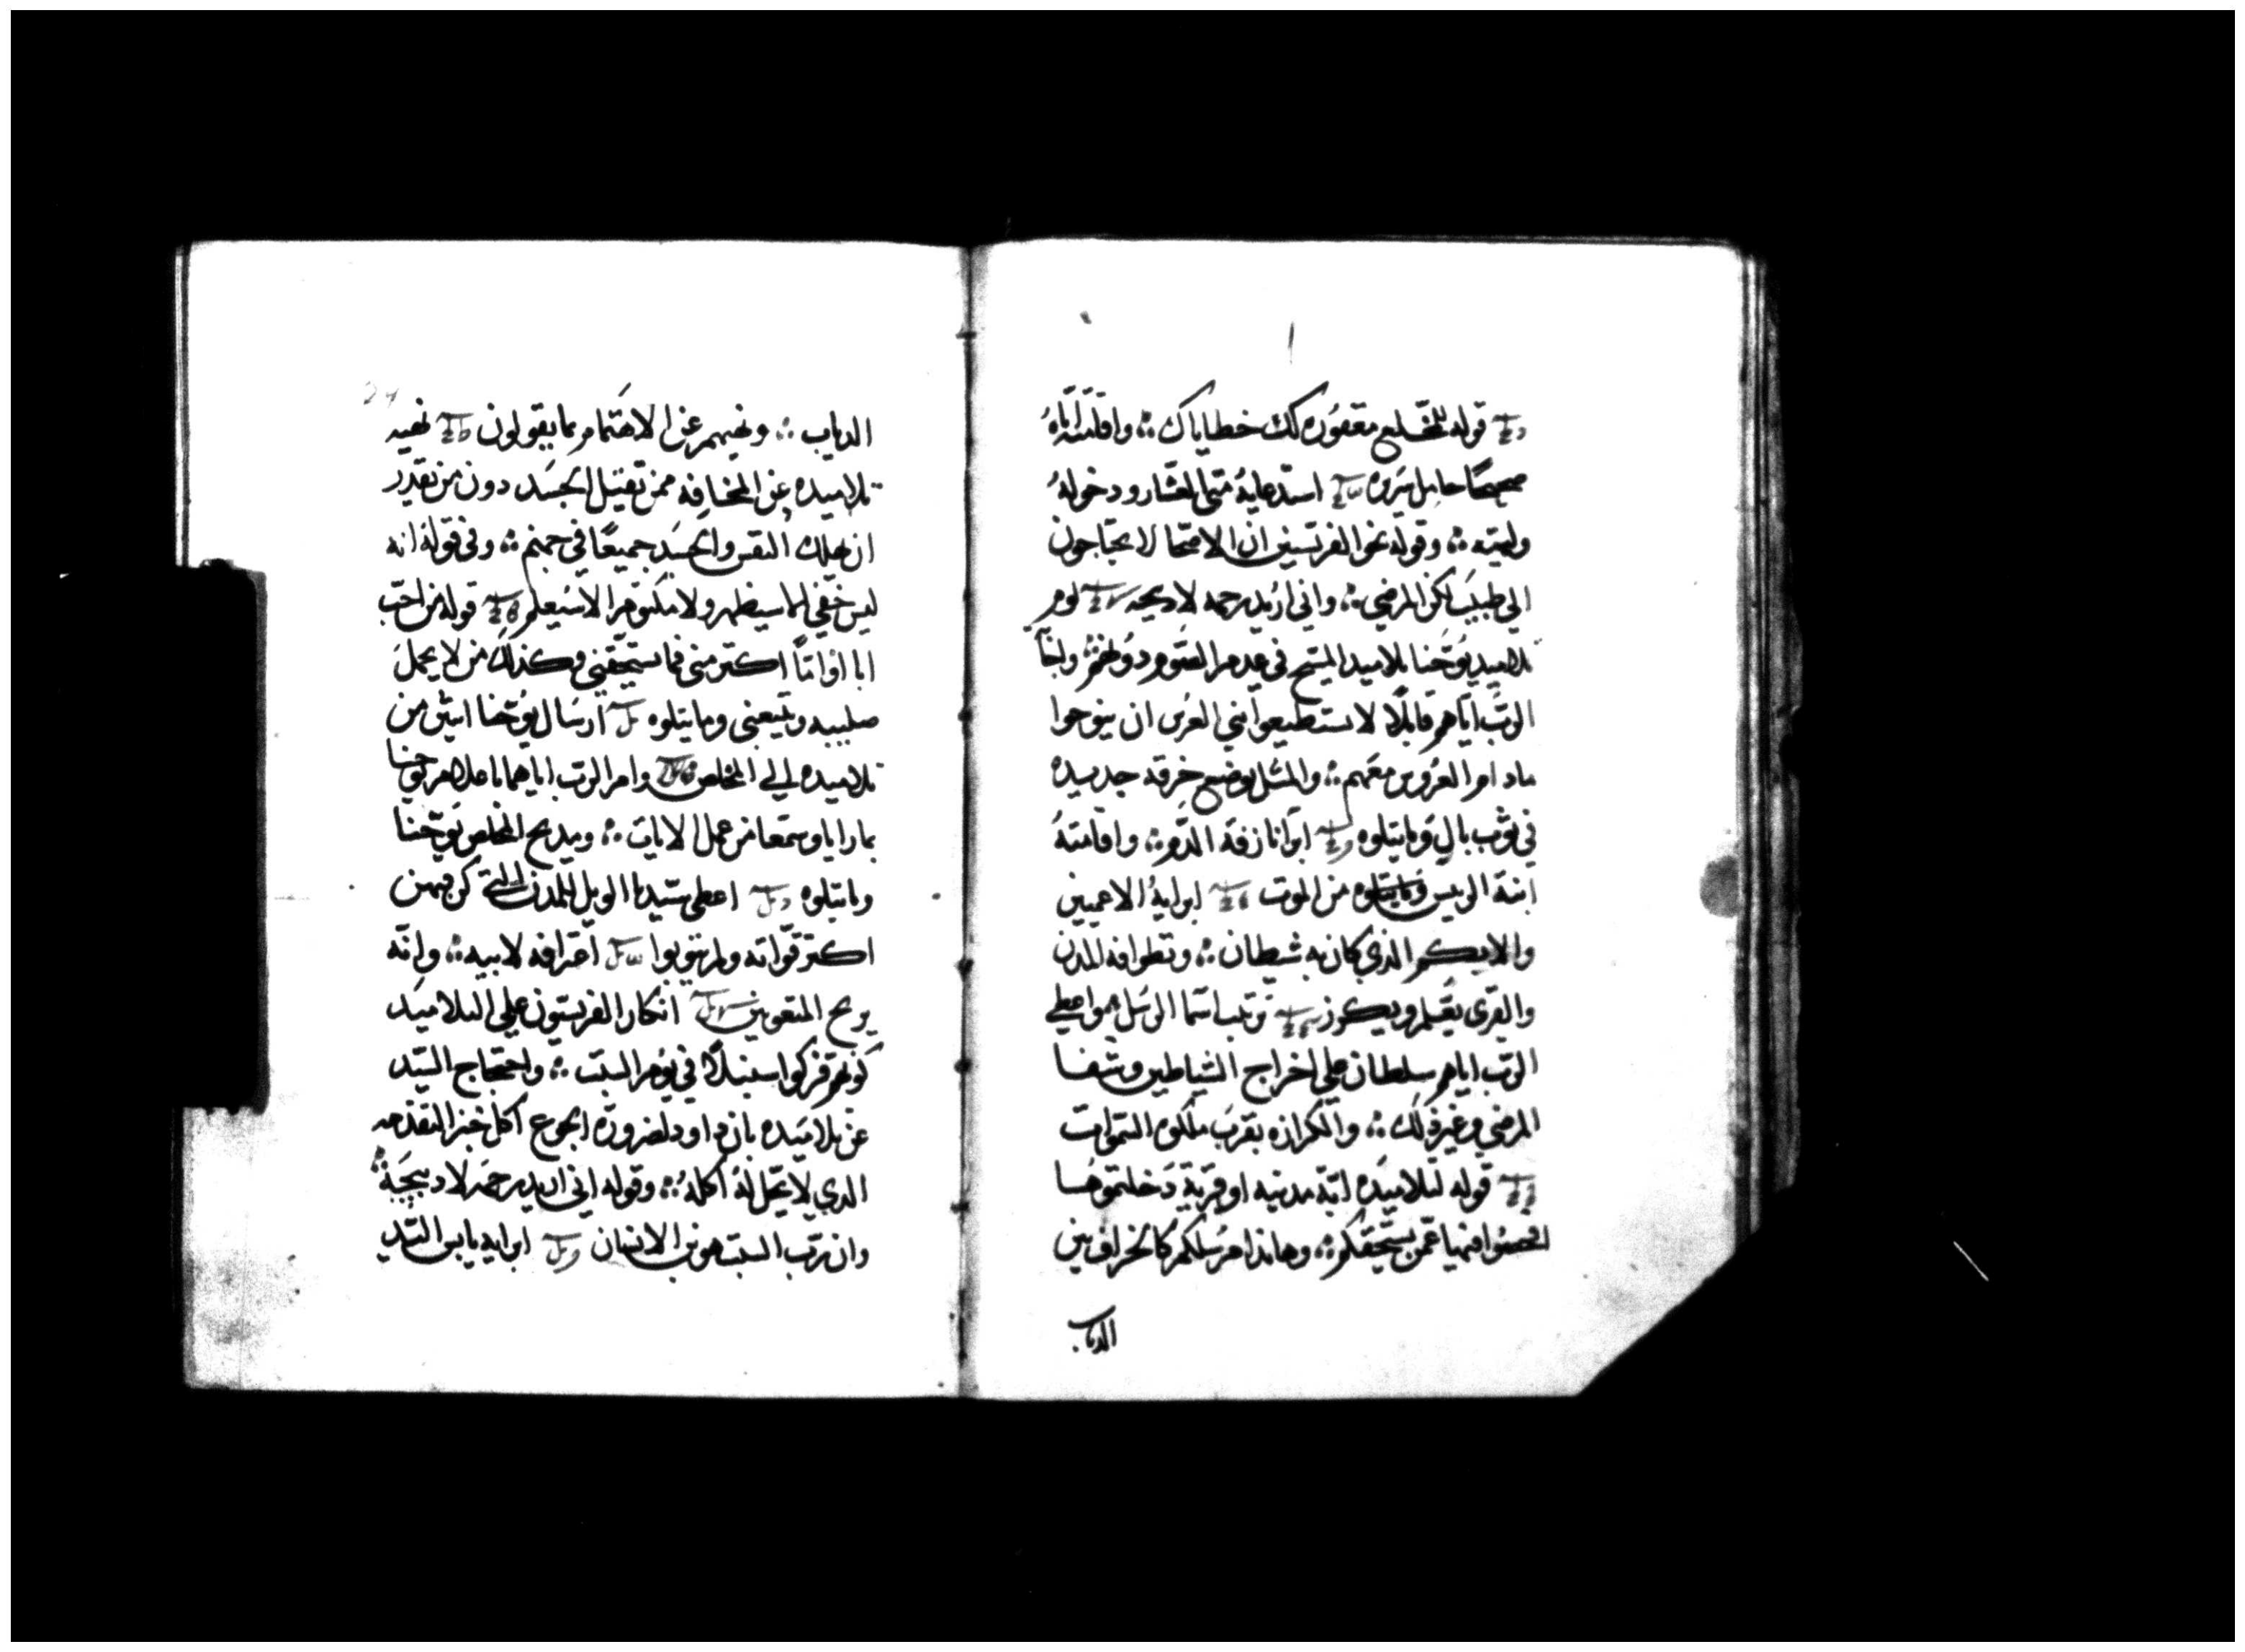 قوله للمخلع مغفوره لك خطاياك ؞ واقامته اياه
صحيحًا حامل سريره استدعايهُ متى العشار ودخولهُ
وليمته ؞ وقوله عن الفريسيين ان الاصحا لا يحتاجون
الي طبيب لكن المرضي ؞ واني اريد رحمه لا دبيحه لوم
تلاميد يوحنا تلاميد المسيح في عدم الصوم دونهم ؞ وجاب
الرب اياهم قايلًا لا يستطيعوا بني العرس ان ينوحوا
مادام العروس معهم ؞ والمثل بوضع خرقه جديده
في ثوب بالٍ وما يتلوه ابرا نازفة الدم ؞ واقامتهُ
ابنة الريس من الموت ابرايهُ الاعميين
والابكم الذي كان به شيطان ؞ وتطوافه المدن
والقرى يعلم ويكرز ترتيب اسما الرسل مواعطي
الرب اياهم سلطان علي اخراج الشياطين وشفا
المرضي وغير ذلك ؞ والكرازه بقرب ملكوه السموات
قوله لتلاميده اية مدينه او قرية دخلتموها
افحصوا فيها عمن يستحقكم ؞ وهاندا مرسلكم كالخراف بين
الدياب
الدياب ؞ ونهيهم عن الاهتمام بما يقولون نهيه
تلاميده عن المخافه ممن تقتيل الجسد دون من تقدر
ان يهلك النفس والجسد جميعًا في جهنم ؞ وفي قوله انه
ليس خفي الا سيظهر ولا مكتوم الا سيعلم قوله من احب
ابا او امًا اكتر مني فما يستحقني وكذلك من لا يحمل
صليبه ويتبعني وما يتلوه ارسال يوحنا اثنين من
تلاميده الي المخلص وامر الرب اياهما باعلام يوحنا
بما رايا وسمعا من عمل الايات ؞ ومديح المخلص يوحنا
وما يتلوه اعطي سيدنا الويل للمدن التي كن فيهن
اكتر قواته ولم يتوبوا اعترافه لابيه ؞ وانه
يريح المتعوبين انكار الفريسيون علي التلاميد
كونهم فركوا سنبلًا في يوم السبت ؞ واحتجاج السيد
عن تلاميده بان داود لضرورة الجوع اكل خبز التقدمه
الدي لا يحل لهُ اكلهُ ؞ وقوله اني اريد رحمه لا دبيحة ؞
وان رب السبت هو بن الانسان ابرايه يابس اليد